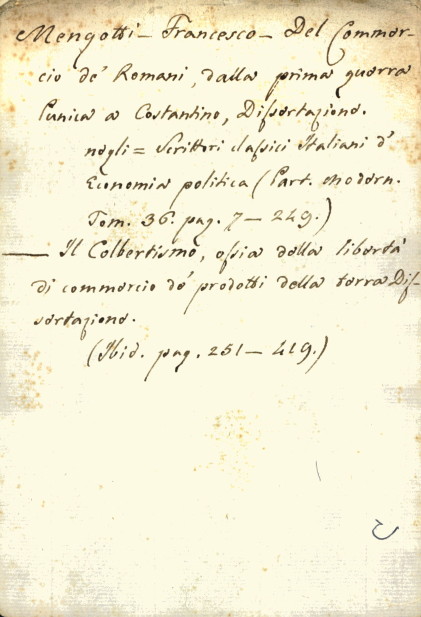 Mengotti - Francesco - Del Commer-
cio de' Romani, dalla prima guerra
Punica a Costantino, Dissertazione.
negli = Scrittori classici Italiani d'
Economia politica (Part. modern.
Tom. 36. pag. 7 - 249.)
— Il Colbertismo, ossia della libertà
di commercio de' prodotti della terra Dis-
sertazione.
(Ibid. pag. 251 - 419.)